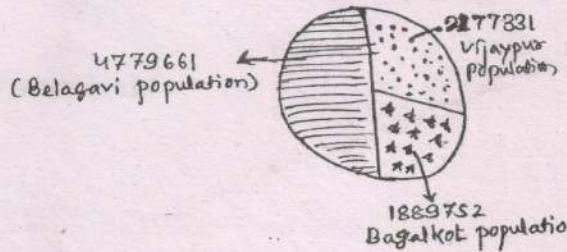 4779661
(Belagavi population)
2177331
Vijaypur
population
1889752
Bagalkot populatio